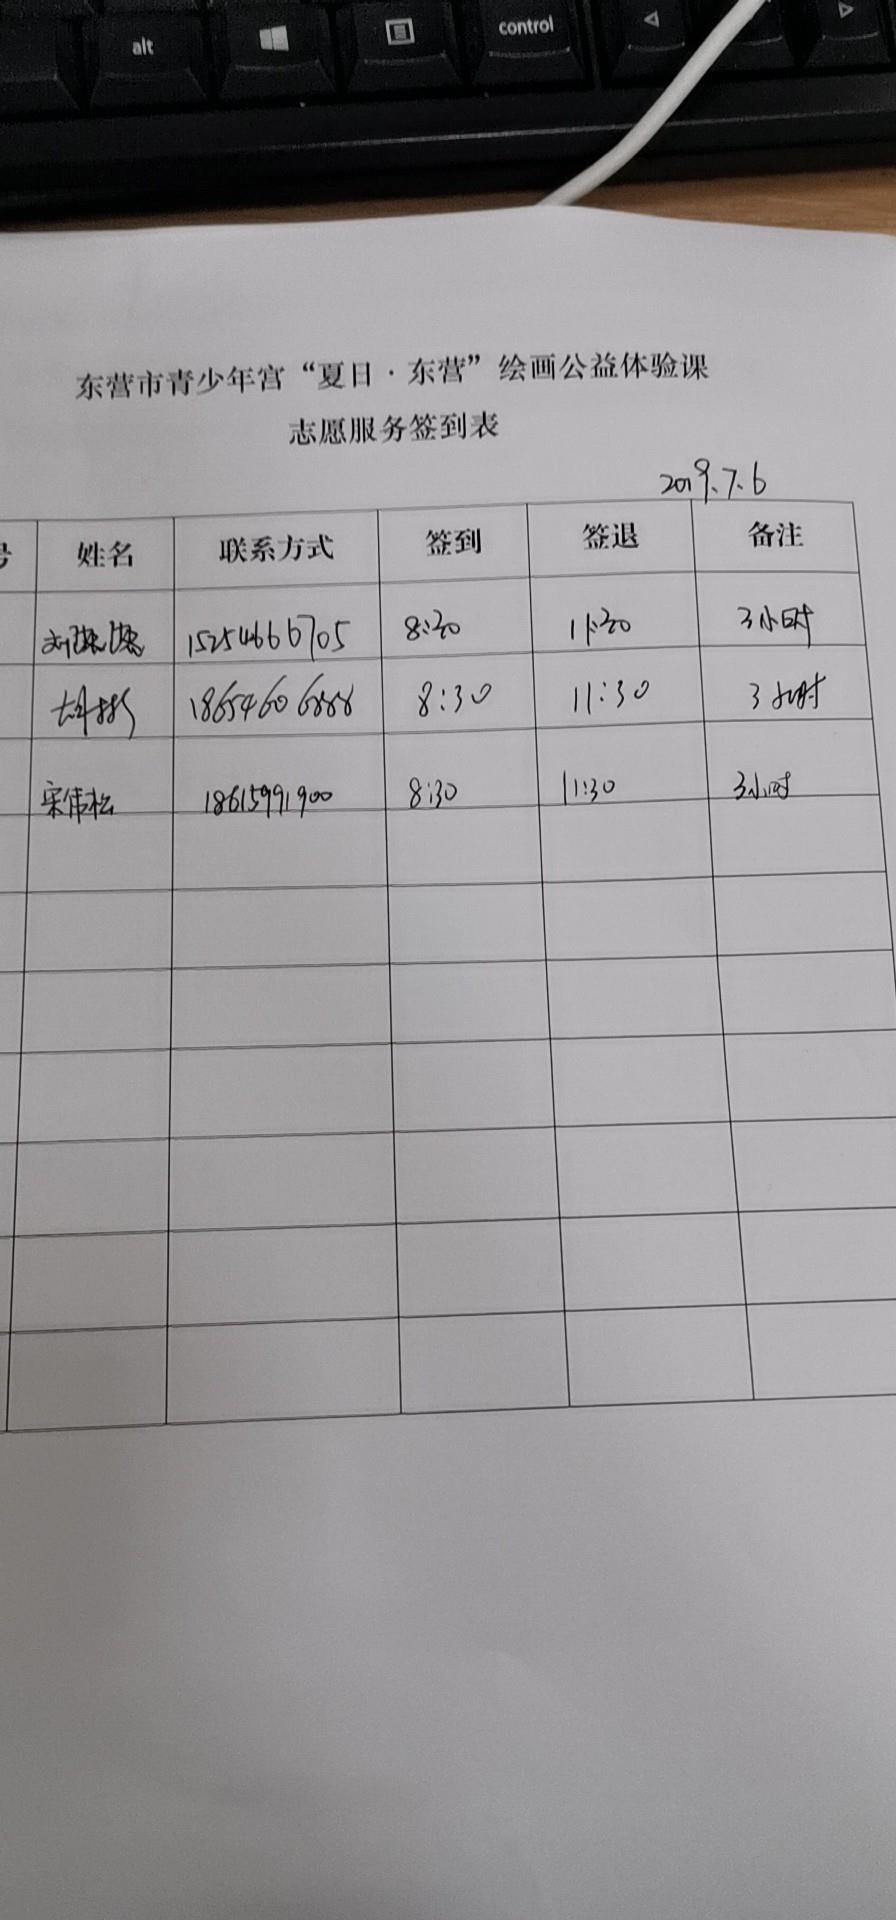 alt
control
东营市青少年宫“夏日·东营”绘画公益体验课
志愿服务签到表
2019.7.6
号 姓名 联系方式 签到 签退 备注
刘 15254666705 8:30 11:30 3小时
18654606888 8:30 11:30 3小时
宋伟松 18615991900 8:30 11:30 3小时